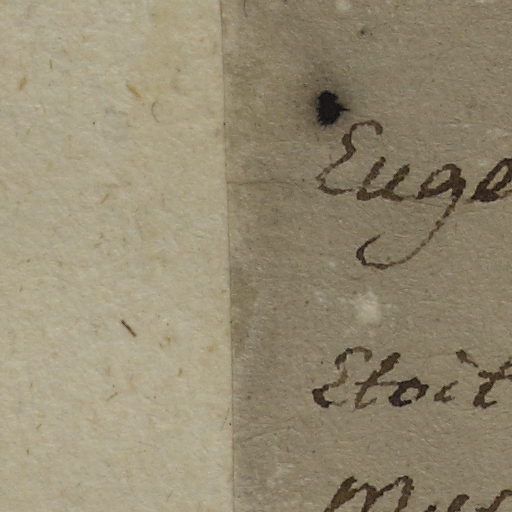 Euge
Etoit